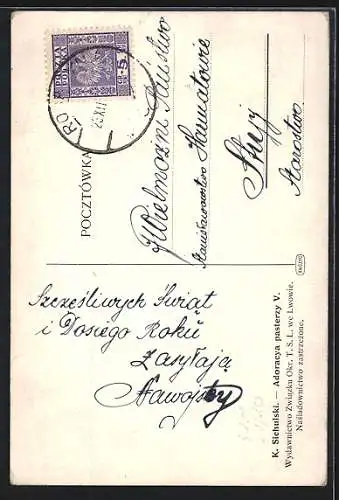 POCZTA
POLSKA
5
GR
RO
23 XII
POCZTÓWKA
Wielmożni Państwo
Stanisławostwo
Stryj
Starostwo
K. Sichulski. — Adoracya pasterzy V.
Wydawnictwo Związku Okr. T. S. L. we Lwowie.
Naśladownictwo zastrzeżone.
Szczęśliwych Świąt
i Dosiego Roku
zasyłają